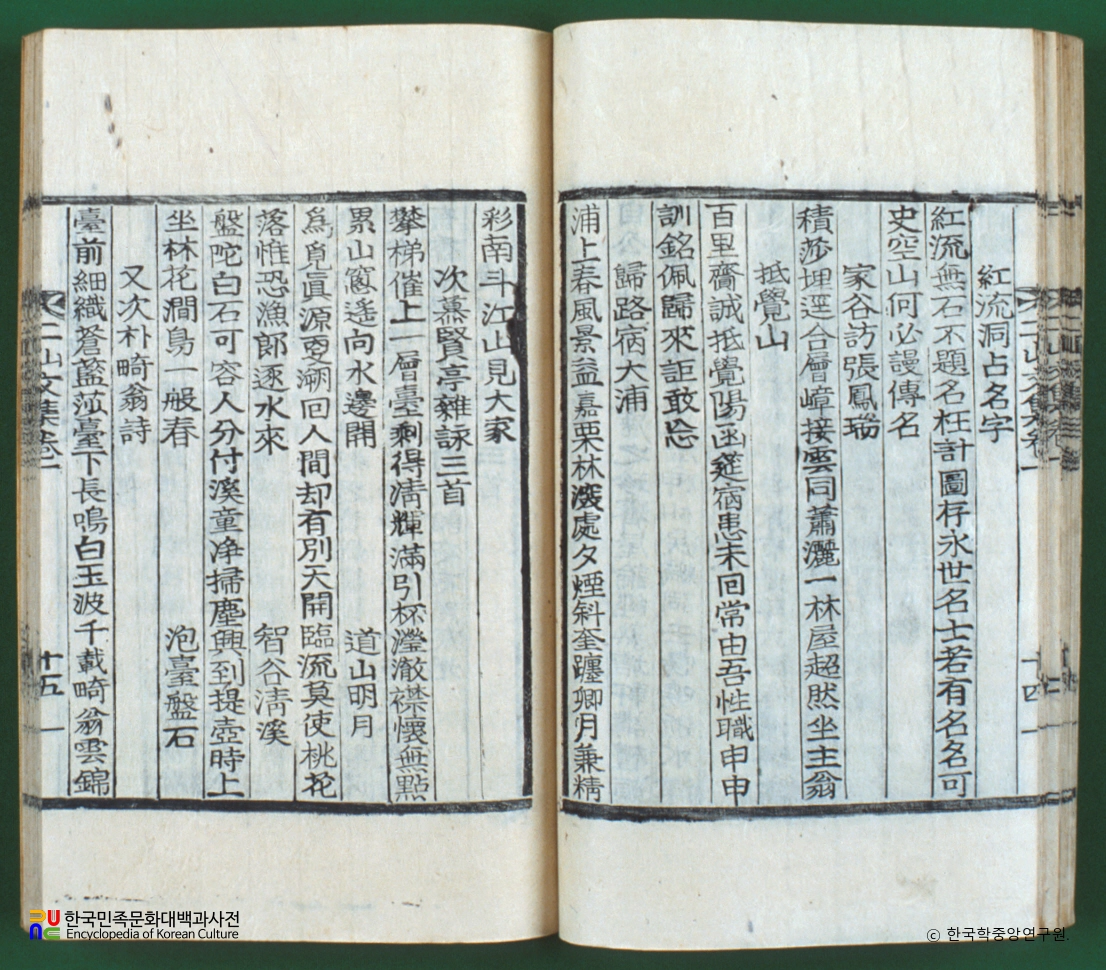 紅流洞占名字
紅流無石不題名枉計圖存永世名士若有名名可
史空山何必謾傳名
家谷訪張鳳瑞
積莎埋逕合層嶂接雲同蕭灑一林屋超然坐主翁
抵覺山
百里齋誠抵覺陽函筵病患未回常由吾性職申申
訓銘佩歸來詎敢忘
歸路宿大浦
浦上春風景益嘉栗林深處夕煙斜奎躔卿月兼精
彩南斗江山見大家
次慕賢亭雜詠三首
攀梯催上一層臺剩得淸輝滿引杯瀅澈襟懷無點
累山窓遙向水邊開 道山明月
爲覓眞源更溯回人間却有別天開臨流莫使桃花
落惟恐漁郞逐水來 智谷淸溪
盤陀白石可容人分付溪童净掃塵興到提壺時上
坐林花澗鳥一般春 泡臺盤石
又次朴畸翁詩
臺前細織蒼藍莎臺下長鳴白玉波千載畸翁雲錦
二山文集卷一
十五
十四
한국민족문화대백과사전
Encyclopedia of Korean Culture
ⓒ 한국학중앙연구원.